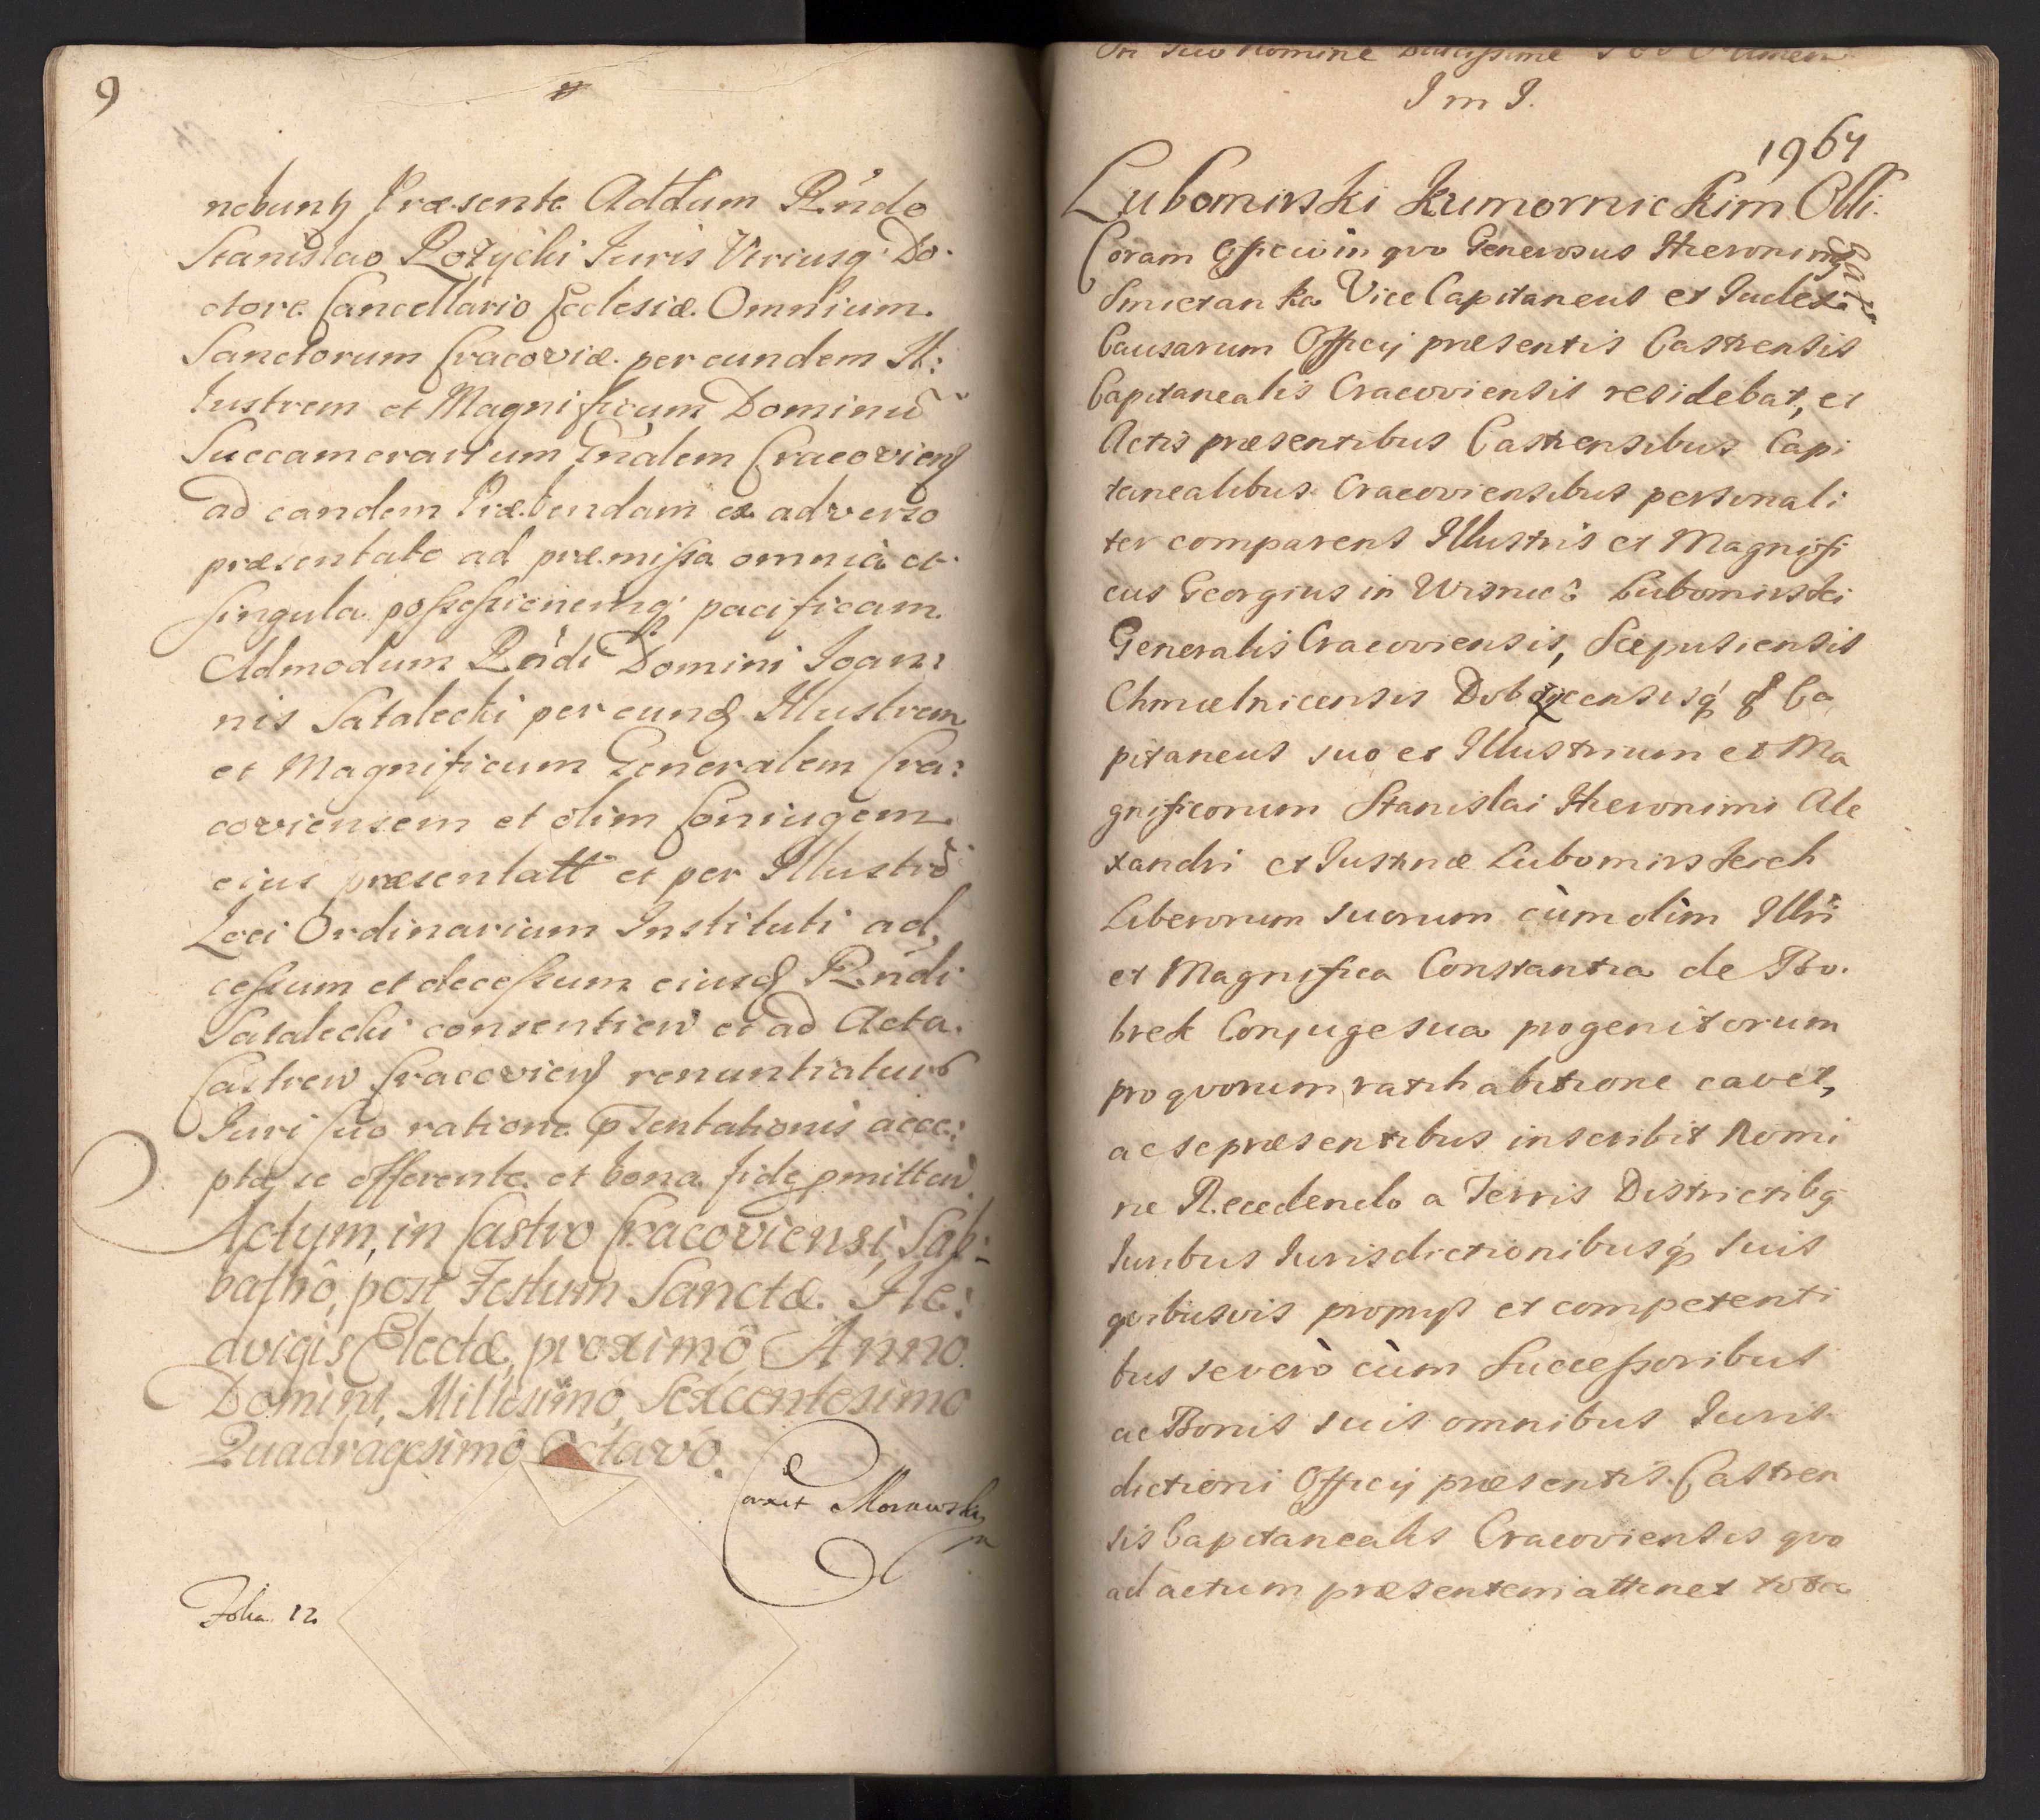 9
nebunt Præsente Addum Rndo
Stanislao Rożycki Iuris Vtriusq Do-
ctore Cancellario Ecclesiæ Omnium
Sanctorum Cracoviæ per eundem Il:
lustrem et Magnificum Dominū
Succamerarium Gnalem Cracovien
ad eandem Præbendam ex adverso
præsentato ad præmissa omnia et
singula possessionemq pacificam
Admodum Rndi Domini Ioan:
nis Satalecki per eund Illustrem
et Magnificum Generalem Cra:
coviensem et olim Coniugem
eius præsentati et per Illustrē
Loci Ordinarium Instituti ad
cessum et decessum eiusd Rndi
Satalecki consentien et ad Acta
Castren Cracovien renuntiaturi
Iuri suo ratione pręsentationis acce:
ptæ se offerente et bona fide pmitten
Actum, in Castro Cracoviensi, Sab:
batho, post Festum Sanctæ He:
dvigis Electæ, proximô, Anno
Domini, Millesimo, Sexcentesimo
Quadragesimô Octavo.
Corexit Morawsky
Folia 12.
On Suo Nomine Amen
I m I.
1964
Lubomirski Kumornickim Obli:
gatio
Coram Officio in qvo Generosus Hieronimq
Smietanka Vice Capitaneus et Iudex
Causarum Officij præsentis Castrensis
Capitanealis Cracoviensis residebat, et
Actis præsentibus Castrensibus Capi
tanealibus Cracoviensibus personali
ter comparens Illustris et Magnifi
cus Georgius in Wisnicz Lubomirski
Generalis Cracoviensis, Scepusiensis
Chmielnicensis Dobczycensisq Ca
pitaneus suo et Illustrium et Ma
gnificorum Stanislai Hieronimi Ale
xandri et Iustinæ Lubomirskich
Liberorum suorum cùm olim Illri
et Magnifica Constantia de Bo.
brek Conjuge sua progenitorum
pro qvorum ratihabitione cavet,
ac se præsentibus inscribit Nomi
ne Recedendo a Terris Districtibq
Iuribus Iurisdictionibusq suis
qvibusvis proprijs et competenti
bus severò cùm Successoribus
ac Bonis suis omnibus Iuris
dictioni Officij præsentis Castren
sis Capitanealis Cracoviensis qvo
ad actum præsentem attinet tota